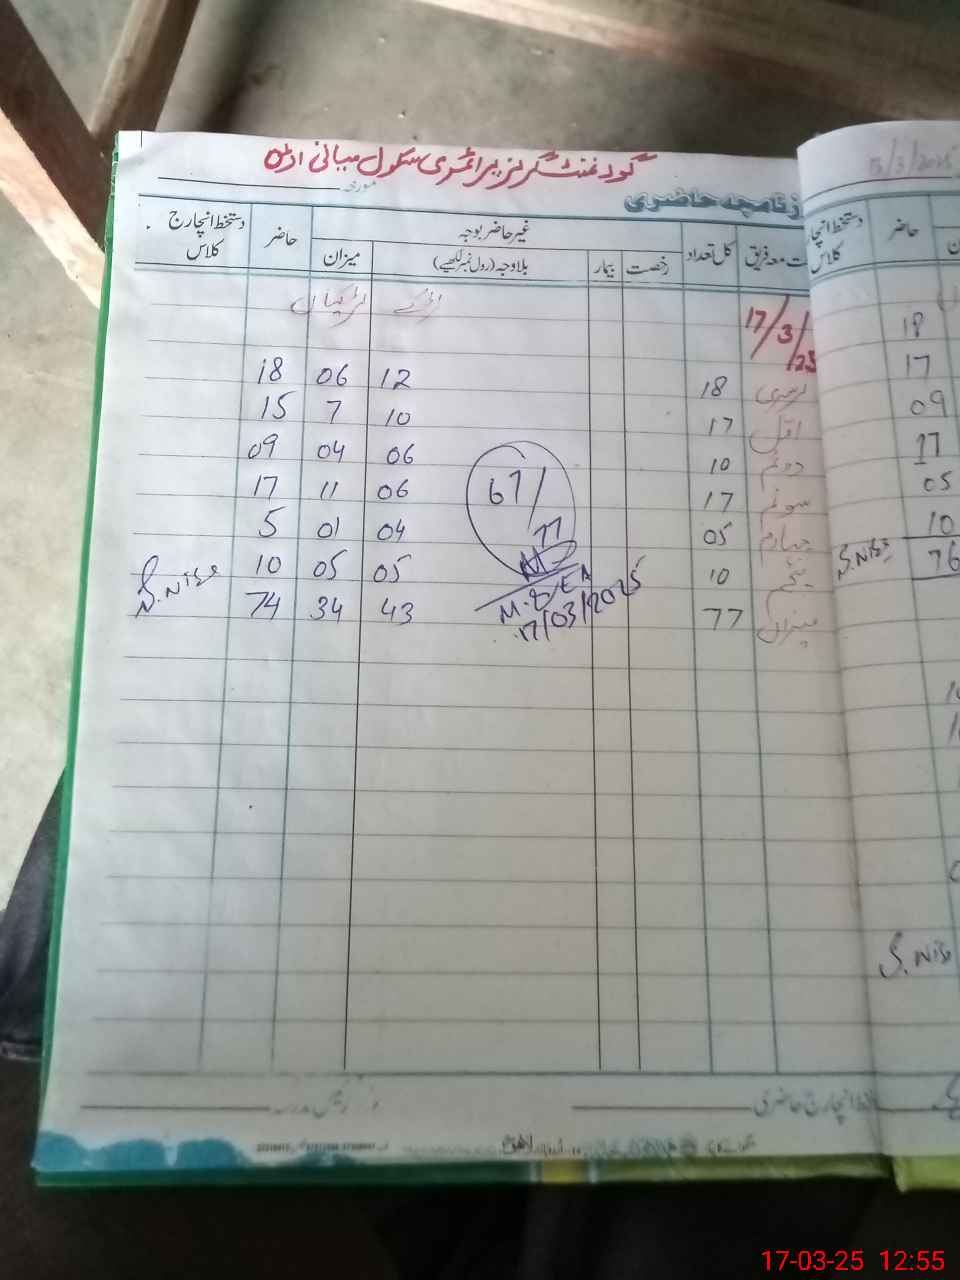 گورنمنٹ گرلز پرائمری سکول میانی اوڈہ
مورخہ
روزنامچہ حاضری
15/3/2025
جماعت معہ فریق کل تعداد غیر حاضر بوجہ حاضر دستخط انچارج کلاس
رخصت بیمار بلاوجہ (رول نمبر لکھیے) میزان
دستخط انچارج کلاس حاضر
17/3/25 لڑکے لڑکیاں
نرسری 18 12 06 18
اول 17 10 7 15
دوئم 10 06 04 09
سوئم 17 06 11 17
چہارم 05 04 01 5
پنجم 10 05 05 10 S.Nisa
میزان 77 43 34 74
67/77
M.&EA
17/03/2025
18
17
09
17
05
10
S.Nisa 76
S.Nisa
دستخط انچارج حاضری
دستخط رئیس مدرسہ
17-03-25 12:55